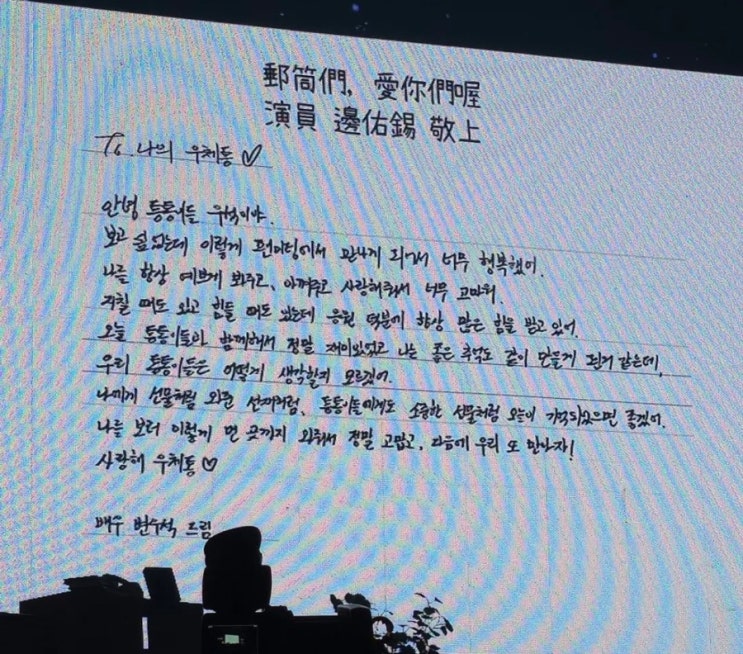 郵筒們, 愛你們喔
演員 邊佑錫 敬上
To. 나의 우체통♡
안녕 통통이들 우석이야.
보고 싶었는데 이렇게 펀미팅에서 만나게 되어서 너무 행복했어.
나를 항상 예쁘게 봐주고, 아껴주고 사랑해줘서 너무 고마워.
지칠 때도 있고 힘들 때도 있는데 응원 덕분에 항상 많은 힘을 받고 있어.
오늘 통통이들과 함께해서 정말 재미있었고 나는 좋은 추억도 같이 만들게 된거 같은데,
우리 통통이들은 어떻게 생각할지 모르겠어.
나에게 선물처럼 와준 선재처럼, 통통이들에게도 소중한 선물처럼 오늘이 기억되었으면 좋겠어.
나를 보러 이렇게 먼 곳까지 와줘서 정말 고맙고, 다음에 우리 또 만나자!
사랑해 우체통♡
배우 변우석 드림